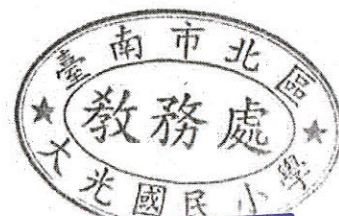 臺南市北區
教務處
大光國民小學